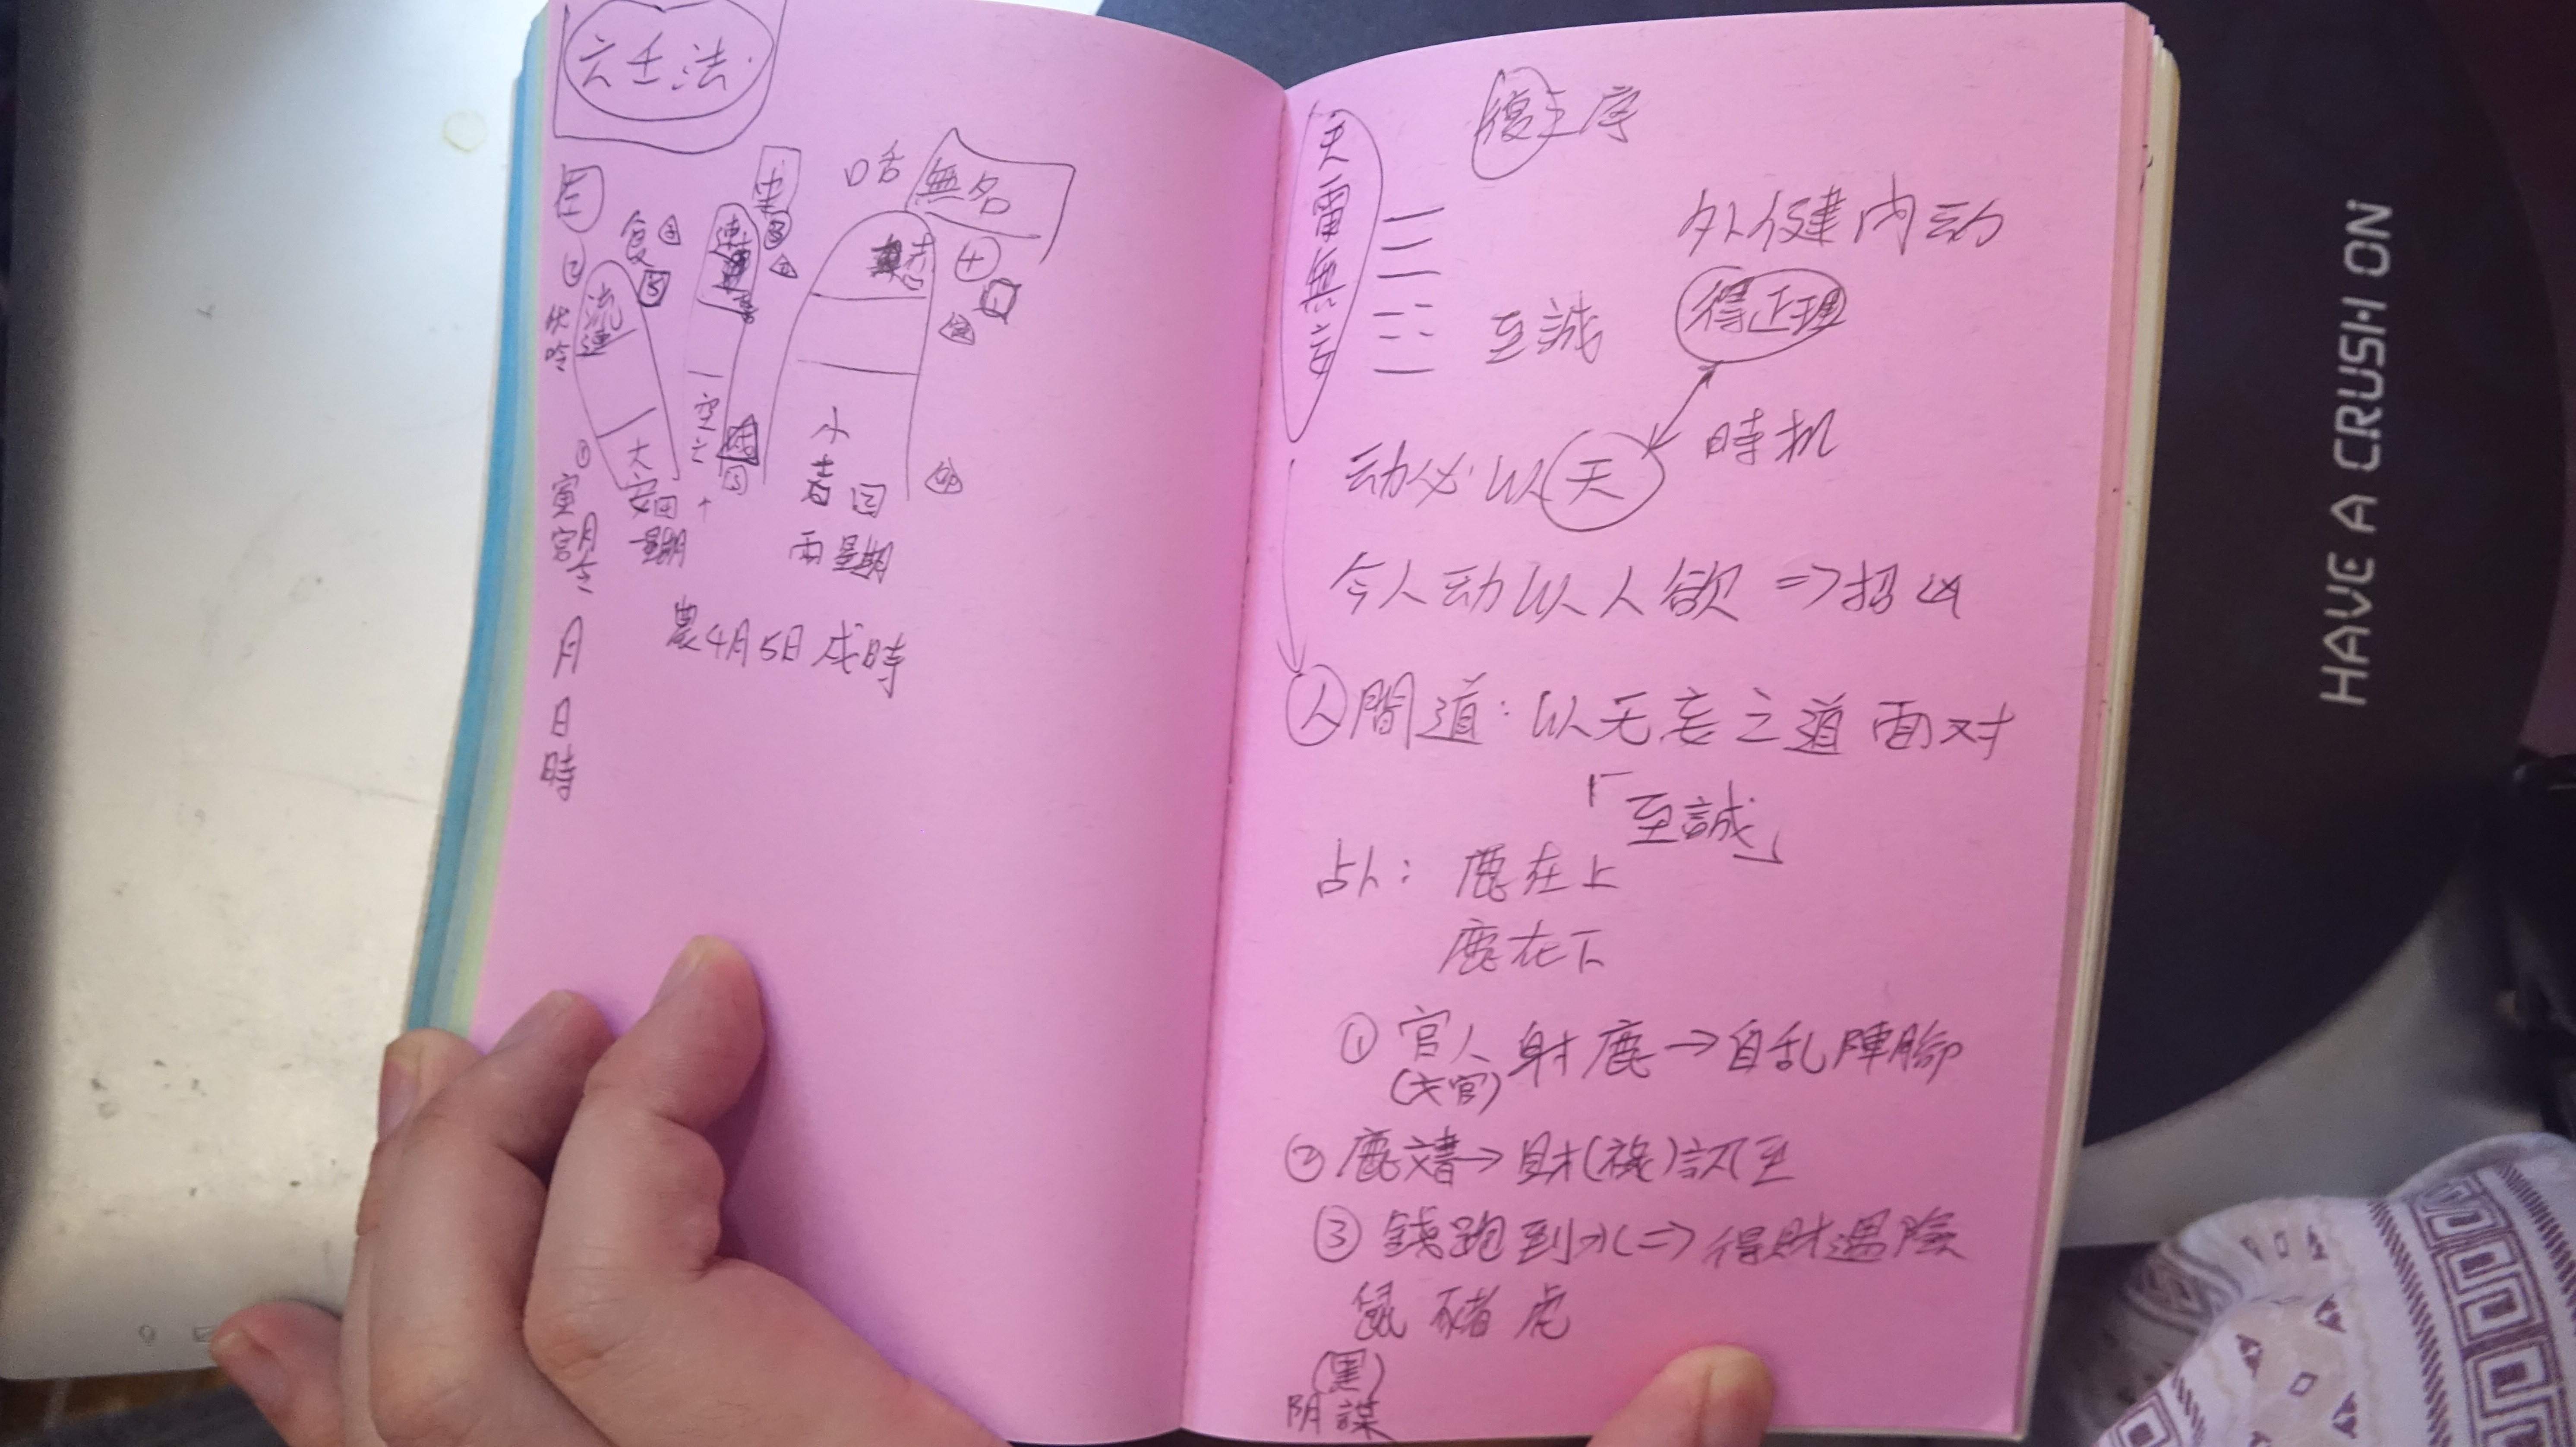 六壬法
口舌 無名
食
流連
大安
一星期
空亡
小吉
兩星期
伏吟
寅宮
月
日
時
農4月5日戌時
復正序
天雷無妄
外健内动
至誠 得正理
時机
动必以天
今人动以人欲 => 招凶
人間道：以无妄之道面对
「至誠」
占卜：鹿在上
鹿在下
① 官人射鹿→自乱陣腳
② 鹿文書→財(祿)訊至
③ 錢跑到水 => 得財遇險
鼠 豬 虎
(黑)
阴謀
HAVE A CRUSH ON